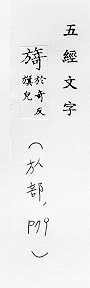 五經文字
旖於奇反
旗皃
(㫃部,P79)